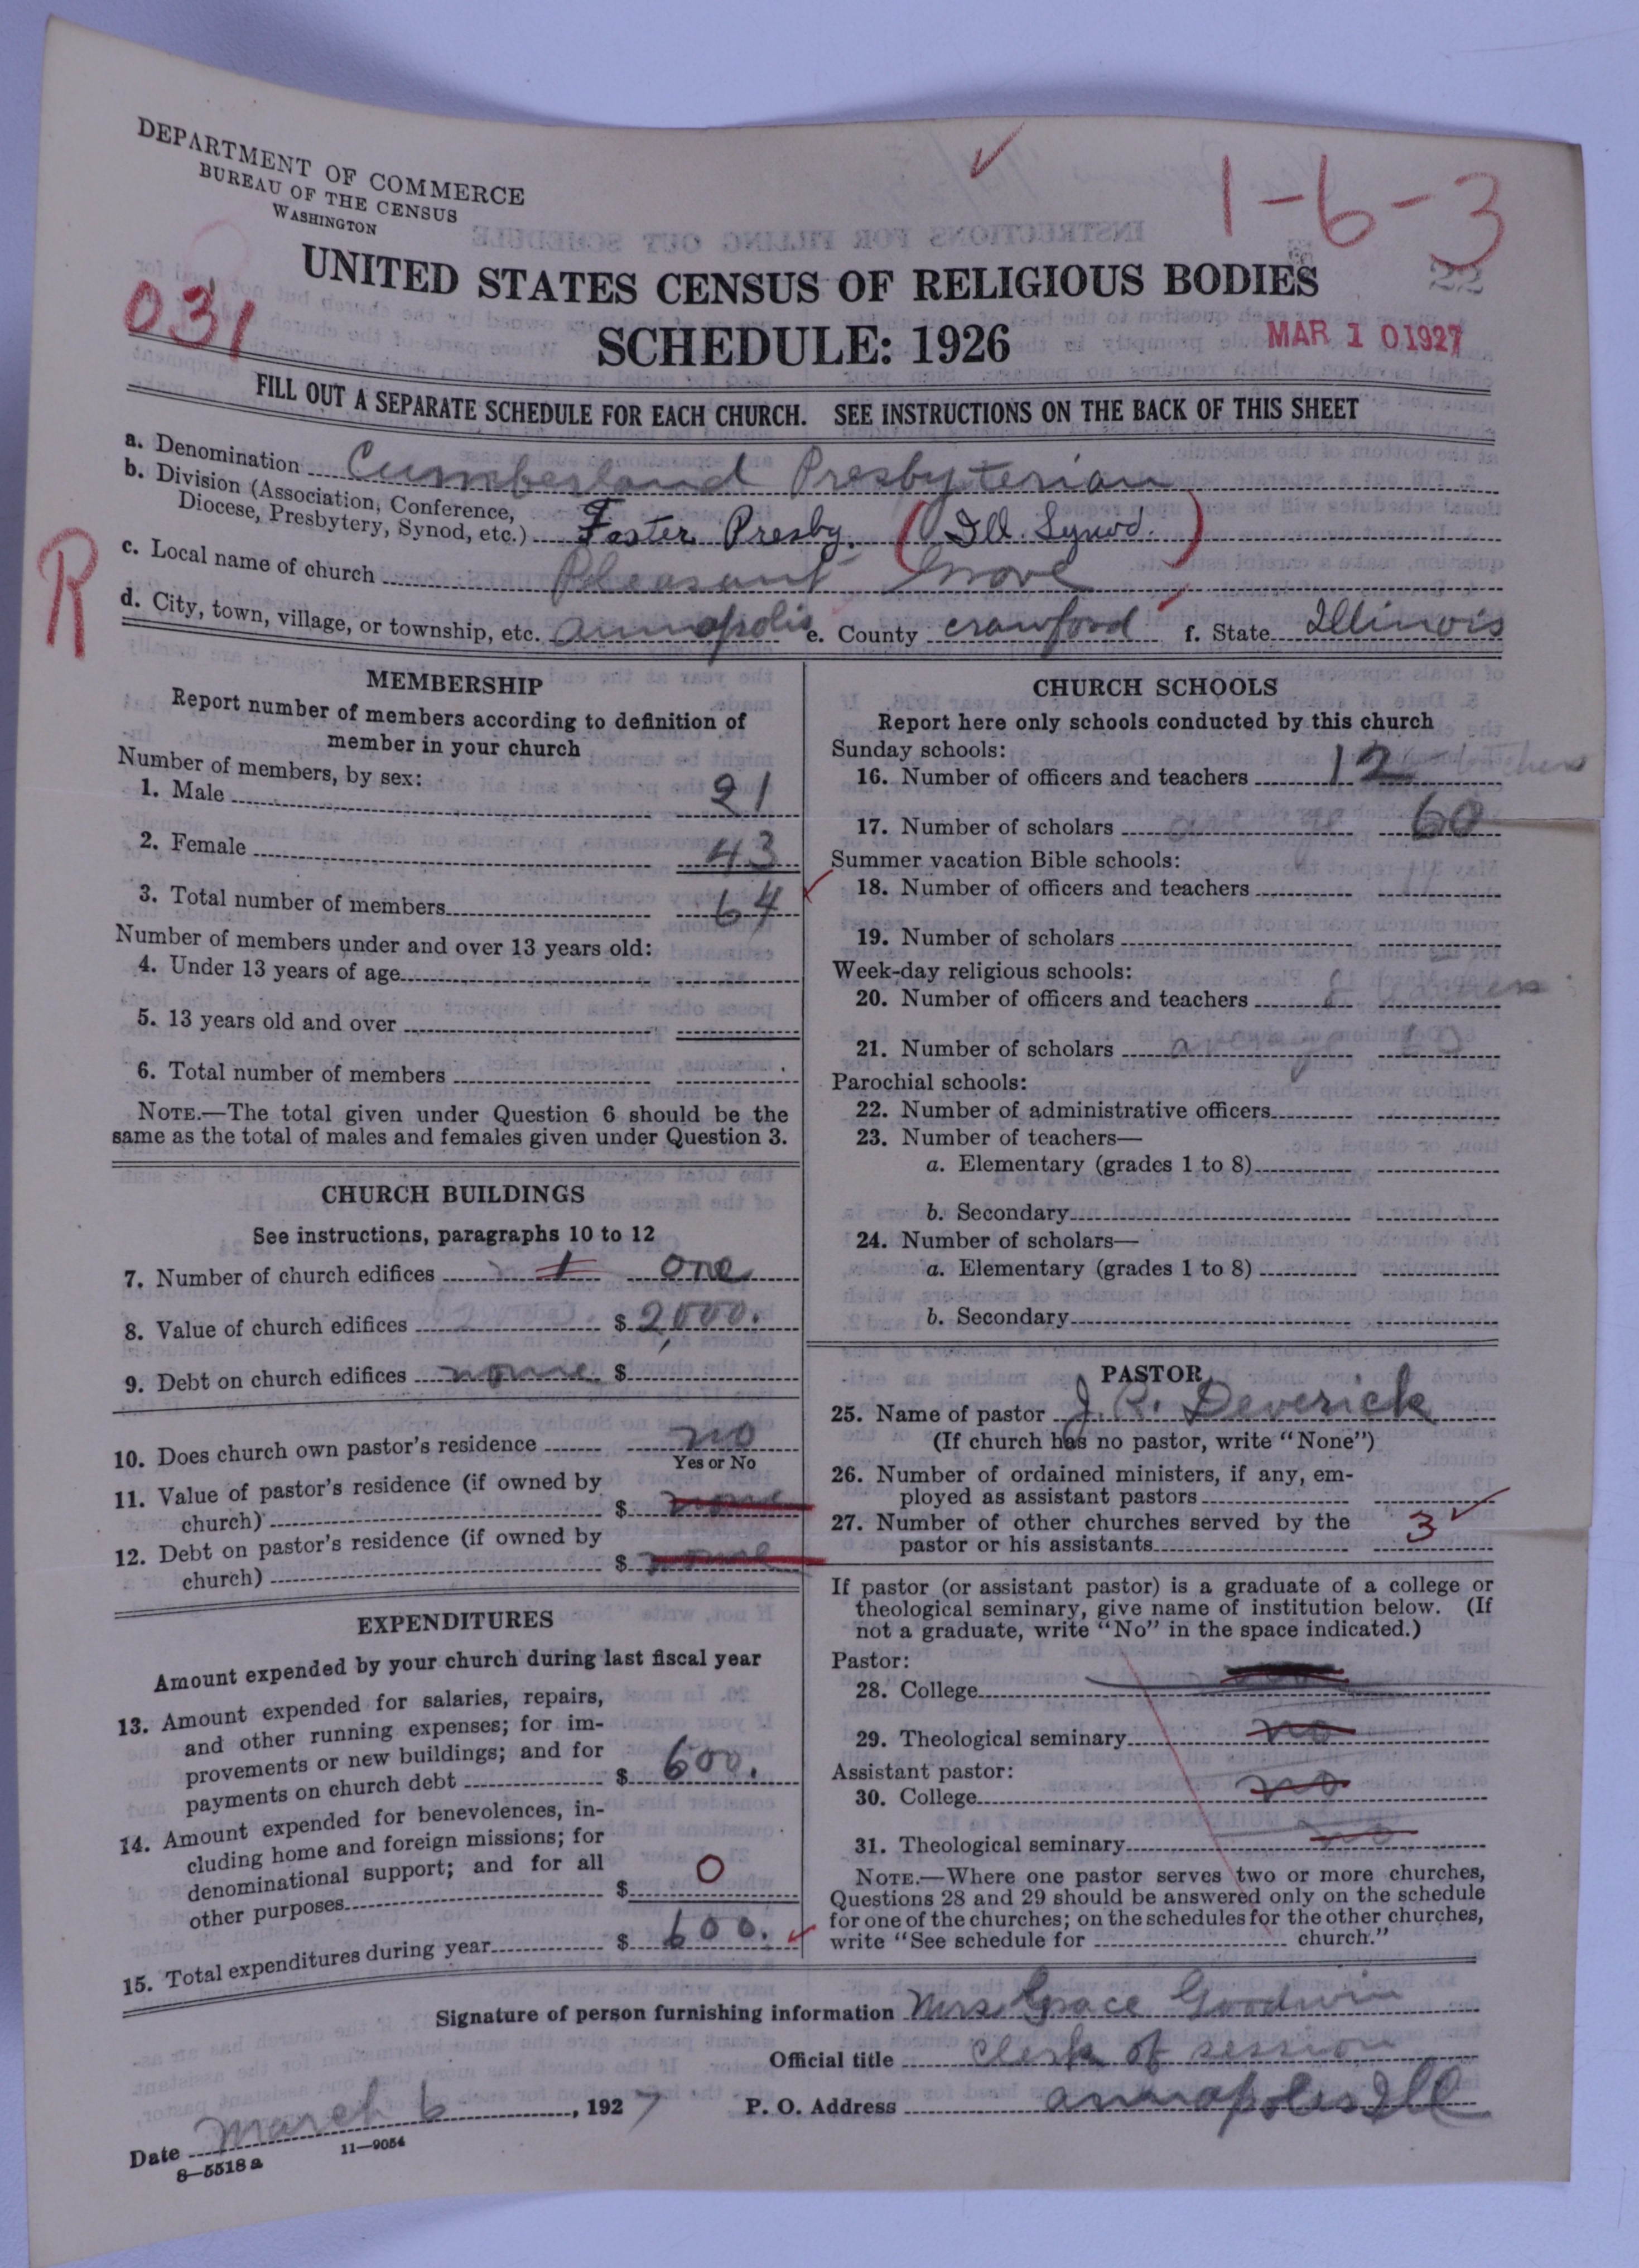 DEPARTMENT OF COMMERCE
BUREAU OF THE CENSUS
WASHINGTON
1-6-3
UNITED STATES CENSUS OF RELIGIOUS BODIES
031
SCHEDULE: 1926
MAR 10 1927
FILL OUT A SEPARATE SCHEDULE FOR EACH CHURCH. SEE INSTRUCTIONS ON THE BACK OF THIS SHEET
a. Denomination Cumberland Presbyterian
b. Division (Association, Conference,
Diocese, Presbytery, Synod, etc.) Foster Presby. (Ill. Synod.)
R
c. Local name of church Pleasant Grove
d. City, town, village, or township, etc. annapolis e. County crawford f. State Illinois
MEMBERSHIP
Report number of members according to definition of
member in your church
Number of members, by sex:
1. Male 21
2. Female 43
3. Total number of members 64
Number of members under and over 13 years old:
4. Under 13 years of age
5. 13 years old and over
6. Total number of members
NOTE.—The total given under Question 6 should be the
same as the total of males and females given under Question 3.
CHURCH BUILDINGS
See instructions, paragraphs 10 to 12
7. Number of church edifices 1 one
8. Value of church edifices $ 2,000.
9. Debt on church edifices none $
10. Does church own pastor's residence no
Yes or No
11. Value of pastor's residence (if owned by
church) $ none
12. Debt on pastor's residence (if owned by
church) $ none
EXPENDITURES
Amount expended by your church during last fiscal year
13. Amount expended for salaries, repairs,
and other running expenses; for im-
provements or new buildings; and for
payments on church debt $ 600.
14. Amount expended for benevolences, in-
cluding home and foreign missions; for
denominational support; and for all
other purposes $ 0
15. Total expenditures during year $ 600.
CHURCH SCHOOLS
Report here only schools conducted by this church
Sunday schools:
16. Number of officers and teachers 12
17. Number of scholars 60
Summer vacation Bible schools:
18. Number of officers and teachers
19. Number of scholars
Week-day religious schools:
20. Number of officers and teachers
21. Number of scholars average
Parochial schools:
22. Number of administrative officers
23. Number of teachers—
a. Elementary (grades 1 to 8)
b. Secondary
24. Number of scholars—
a. Elementary (grades 1 to 8)
b. Secondary
PASTOR
25. Name of pastor J. R. Deverick
(If church has no pastor, write "None")
26. Number of ordained ministers, if any, em-
ployed as assistant pastors
27. Number of other churches served by the
pastor or his assistants 3
If pastor (or assistant pastor) is a graduate of a college or
theological seminary, give name of institution below. (If
not a graduate, write "No" in the space indicated.)
Pastor:
28. College
29. Theological seminary no
Assistant pastor:
30. College no
31. Theological seminary no
NOTE.—Where one pastor serves two or more churches,
Questions 28 and 29 should be answered only on the schedule
for one of the churches; on the schedules for the other churches,
write "See schedule for church."
Signature of person furnishing information Mrs Grace Goodwin
Official title clerk of session
Date March 6, 1927 P. O. Address annapolis Ill
8-5518 a 11-9054